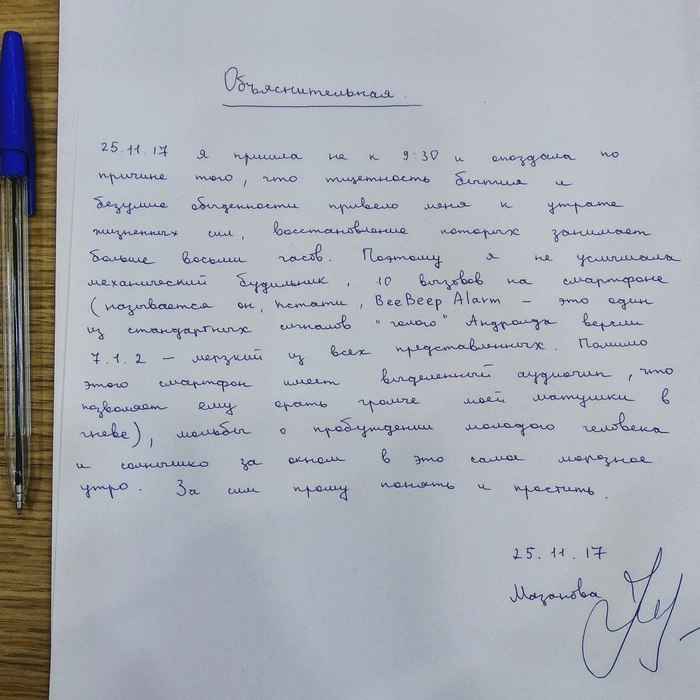 Объяснительная.
25.11.17 я пришла не к 9:30 и опоздала по
причине того, что тщетность бытия и
безумие обыденности привело меня к утрате
жизненных сил, восстановление которых занимает
больше восьми часов. Поэтому я не услышала
механический будильник, 10 вызовов на смартфоне
(называется он, кстати, BeeBeep Alarm – это один
из стандартных сигналов "голого" Андроида версии
7.1.2 – мерзкий из всех представленных. Помимо
этого смартфон имеет выделенный аудиочип, что
позволяет ему орать громче моей матушки в
гневе), мольбы о пробуждении молодого человека
и солнышко за окном в это самое морозное
утро. За сим прошу понять и простить.
25.11.17
Мазанова